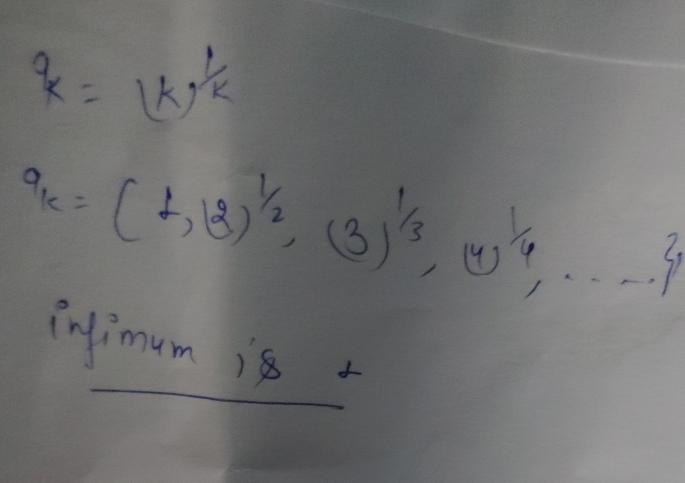 a_k = (k)^1/k
a_k = (1, (2)^1/2, (3)^1/3, (4)^1/4, ......}
infimum is 1